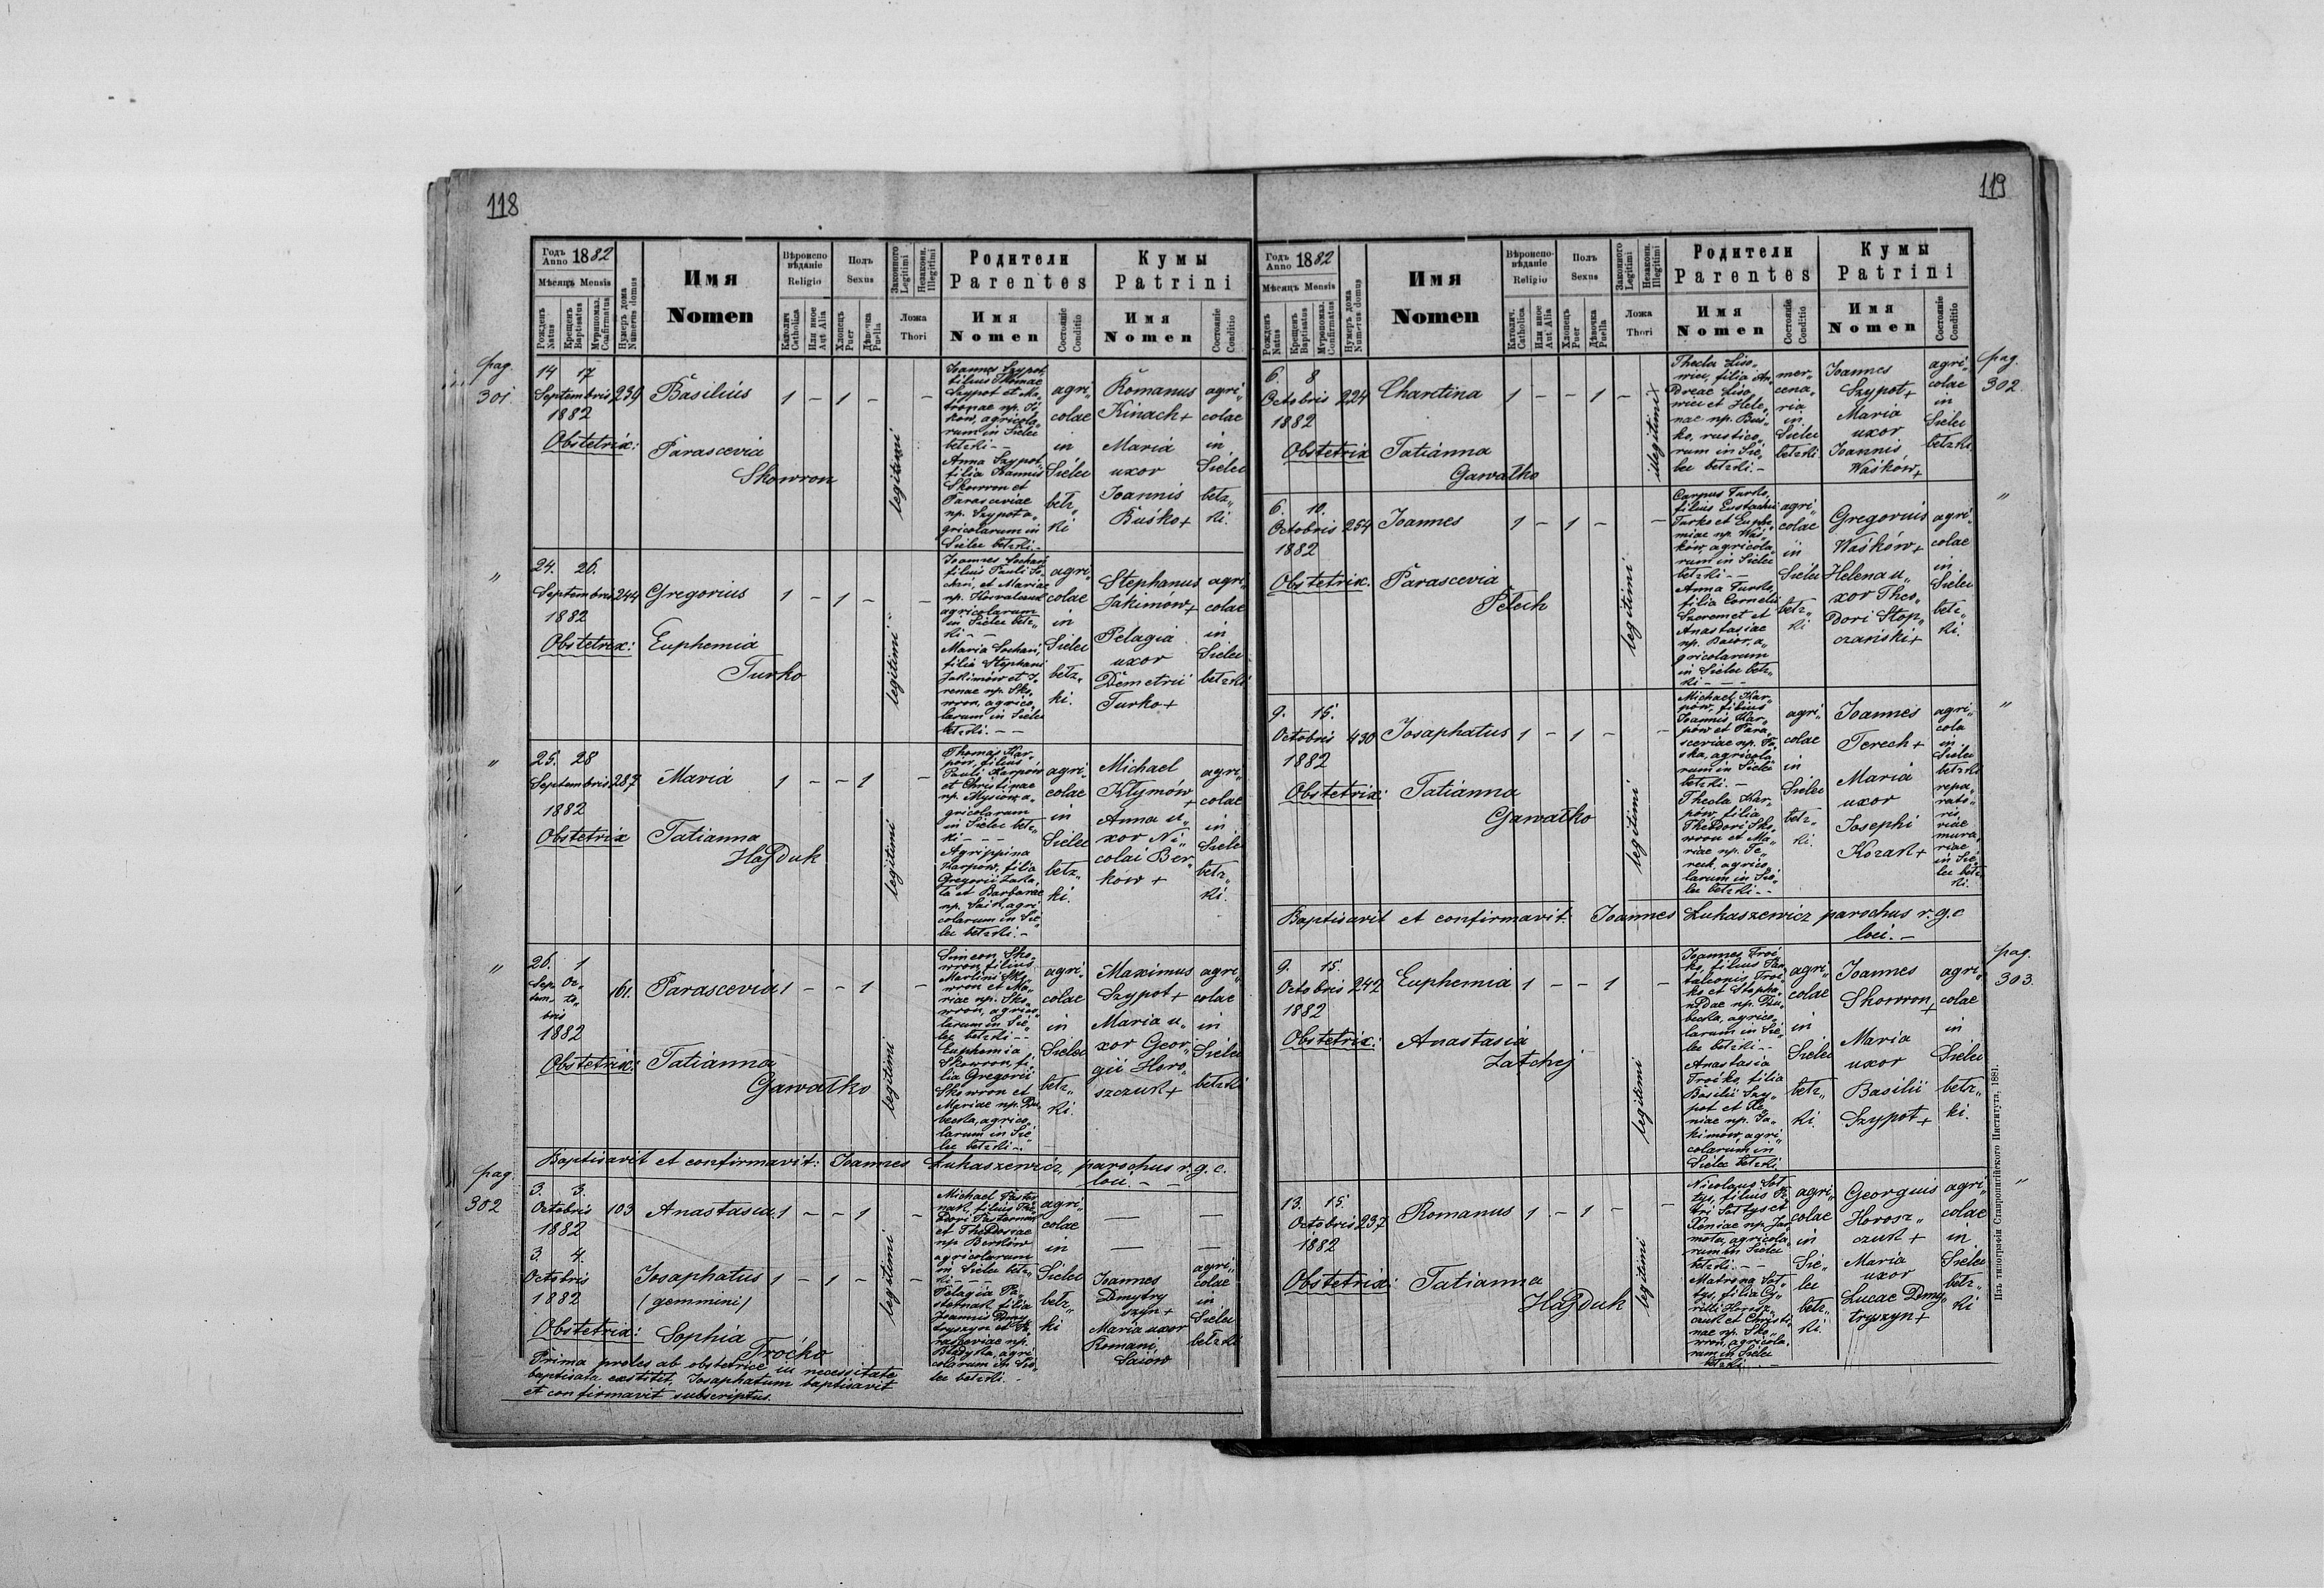 118
Годъ Anno 1882
Мѣсяцъ Mensis
Рожденъ Natus
Крещенъ Baptisatus
Мѵропомаз. Confirmatus
Нумеръ дома Numerus domus
Имя
Nomen
Вѣроисповѣданіе
Religio
Католич. Catholica
Или иное Aut Alia
Полъ
Sexus
Хлопецъ Puer
Дѣвочка Puella
Законного Legitimi
Незаконн. Illegitimi
Ложа
Thori
Родители
Parentes
Имя
Nomen
Состояніе Conditio
Кумы
Patrini
Имя
Nomen
Состояніе Conditio
pag. 301
14 17
Septembris 239
1882
Basilius 1 – 1 – –
Obstetrix: Parascevia
Skowron
legitimi
Ioannes Szypot,
filius Thomae
Szypot et Ma„
tronae np.
agricola„
rum in Sielec
betzki. –
Anna Szypot,
filia Ioannis
Skowron et
Parasceviae
np. Szypot a„
gricolarum in
Sielec betzki. –
agri„
colae
in
Sielec
betz„
ki
Romanus
Kinach +
Maria
uxor
Ioannis
Buśko +
agri„
colae
in
Sielec
betz„
ki.
„
24. 26.
Septembris 244
1882
Gregorius 1 – 1 – –
Obstetrix: Euphemia
Turko
legitimi
filius Pauli
et Mariae
agricolarum
in Sielec betz„
ki – –
filia Stephani
Jakimów et I„
renae np. Sko„
wron, agrico„
larum in Sielec
betzki. – –
agri„
colae
in
Sielec
betz„
ki.
Stephanus
Jakimów +
Pelagia
uxor
Demetrii
Turko +
agri„
colae
in
Sielec
betzki
„
25. 28
Septembris 287
1882
Maria 1 – – 1 –
Obstetrix Tatianna
Hajduk
legitimi
Thomas Kar„
pów, filius
Pauli Karpów
et Christinae
np. a„
gricolarum
in Sielec betz„
ki – – –
Agrippina
Karpów, filia
Gregorii
et Barbarae
np. agri„
colarum in Sie„
lec betzki. –
agri„
colae
in
Sielec
betz„
ki.
Michael
Klymów
+
Anna u„
xor Ni„
colai Ber„
ków +
agri„
colae
in
Sielec
betz„
ki.
„
26. 1
Sep„ Oc„
tem„ to„
bris
1882
161.
Parascevia 1 – – 1 –
Obstetrix: Tatianna
Gawałko
legitimi
Simeon Sko„
wron, filius
Martini Sko„
wron et Ma„
riae np. Sko„
wron, agrico„
larum in Sie„
lec betzki – –
Euphemia
Skowron, fi„
lia Gregorii
Skowron et
Mariae np.
agrico„
larum in Sie„
lec betzki –.
agri„
colae
in
Sielec
betz„
ki.
Maximus
Szypot +
Maria u„
xor Geor„
gii Horo„
szczuk +
agri„
colae
in
Sielec
betzki
Baptisavit et confirmavit: Ioannes Łukaszewicz, parochus r. g. c.
loci. – –
pag. 302
3. 3.
Octobris 103
1882
Anastasia 1 – – 1 –
3. 4.
Octobris
1882
Iosaphatus 1 – 1 – –
(gemmini)
Obstetrix: Sophia
Troćko
legitimi
Michael Paster„
nak, filius The„
dori Pasternak
et Theodosiae
np. Berków
agricolarum
in Sielec betz„
ki – – –
Pelagia Pa„
sternak filia
Ioannis Dmy„
tryszyn et Pa„
rasceviae np.
agri„
colarum in Sie„
lec betzki. –
agri„
colae
in
Sielec
betz„
ki
Ioannes
Dmytry
szyn +
Maria uxor
Romani
Saiów
agri„
colae
in
Sielec
betzki
Prima proles ab obstetrice in necessitate
baptisata exstitit, Iosaphatum baptisavit
et confirmavit subscriptus.
119
Годъ Anno 1882
Мѣсяцъ Mensis
Рожденъ Natus
Крещенъ Baptisatus
Мѵропомаз. Confirmatus
Нумеръ дома Numerus domus
Имя
Nomen
Вѣроисповѣданіе
Religio
Католич. Catholica
Или иное Aut Alia
Полъ
Sexus
Хлопецъ Puer
Дѣвочка Puella
Законного Legitimi
Незаконн. Illegitimi
Ложа
Thori
Родители
Parentes
Имя
Nomen
Состояніе Conditio
Кумы
Patrini
Имя
Nomen
Состояніе Conditio
pag. 302
6. 8
Octobris 224
1882
Charitina 1 – – 1 –
Obstetrix Tatianna
Gawałko
illegitimi
Thecla Liso„
wiec, filia An„
dreae Liso„
wiec et Hele„
nae np. Buś„
ko, rustico„
rum in Sie„
lec betzki. –
mer„
cena„
ria
in
Sielec
betzki
Ioannes
Szypot +
Maria
uxor
Ioannis
Waśków +
agri„
colae
in
Sielec
betzki
„
6. 10.
Octobris 254
1882
Ioannes 1 – 1 – –
Obstetrix. Parascevia
Pelech
legitimi
Carpus Turko,
filius Eustachii
Turko et Euphe„
miae np. Waś„
ków, agricola„
rum in Sielec
betzki – –
Anna Turko,
filia Cornelii
Szeremet et
Anastasiae
np. a„
gricolarum
in Sielec betz„
ki – – –
agri„
colae
in
Sielec
betz„
ki
Gregorius
Waśków +
Helena u„
xor Theo„
dori Stop„
czański +
agri„
colae
in
Sielec
betz„
ki.
„
9. 15.
Octobris 430
1882
Iosaphatus 1 – 1 – –
Obstetrix: Tatianna
Gawałko
legitimi
Michael Kar„
pów, filius
Ioannis Kar„
pów et Para„
sceviae np.
agricola„
rum in Sielec
betzki. –
Thecla Kar„
pów, filia
Theodori Sko„
wron et Ma„
riae np. Te„
rech, agrico„
larum in Sie„
lec betzki – –
agri„
colae
in
Sielec
betz„
ki.
Ioannes
Terech +
Maria
uxor
Iosephi
Kozak +
agri„
cola
in
Sielec
betzki
repa„
rato„
ris
viae
in Sie„
lec betz„
ki.
Baptisavit et confirmavit: Ioannes Łukaszewicz parochus r. g. c
loci. –
pag. 303.
9. 15.
Octobris 242
1882
Euphemia 1 – – 1 –
Obstetrix: Anastasia
Zatchej
legitimi
Ioannes Troć„
ko, filius Pan„
taleonis Troć„
ko et Stepha„
nidae np.
agrico„
larum in Sie„
lec betzki – –
Anastasia
Troćko, filia
Basilii Szy„
pot et Xe„
niae np. Ja„
kimów, agri„
colarum in
Sielec betzki.
agri„
colae
in
Sielec
betz„
ki.
Ioannes
Skowron +
Maria
uxor
Basilii
Szypot +
agri„
colae
in
Sielec
betz„
ki.
„
13. 15.
Octobris 237
1882
Romanus 1 – 1 – –
Obstetrix: Tatianna
Hajduk
legitimi
Nicolaus Soł„
tys, filius Pe„
tri Sołtys et
Xeniae np.
agricola„
rum in Sielec
betzki. – –
Matrona Soł„
tys, filia Cy„
rilli Horosz„
czuk et Christi„
nae np. Sko„
wron, agricola„
rum in Sielec
betzki. –
agri„
colae
in
Sie„
lec
betz„
ki.
Georgius
Horosz„
czuk +
Maria
uxor
Lucae Dmy„
tryszyn +
agri„
colae
in
Sielec
betz„
ki
Изъ типографіи Ставропигійского Института, 1881.